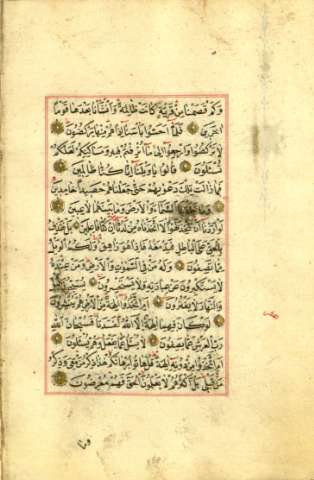 وكم قصمنا من قرية كانت ظالمة وأنشأنا بعدها قوما
آخرين فلما أحسوا بأسنا إذا هم منها يركضون
لا تركضوا وارجعوا إلى ما أترفتم فيه ومساكنكم لعلكم
تسئلون قالوا يا ويلنا إنا كنا ظالمين
فما زالت تلك دعويهم حتى جعلناهم حصيدا خامدين
وما خلقنا السماء والأرض وما بينهما لاعبين
لو أردنا أن نتخذ لهوا لاتخذناه من لدنا إن كنا فاعلين بل نقذف
بالحق على الباطل فيدمغه فإذا هو زاهق ولكم الويل
مما تصفون وله من في السموات والأرض ومن عنده
لا يستكبرون عن عبادته ولا يستحسرون يسبحون الليل
والنهار لا يفترون أم اتخذوا آلهة من الأرض هم ينشرون
لو كان فيهما آلهة إلا الله لفسدتا فسبحان الله
رب العرش عما يصفون لا يسئل عما يفعل وهم يسئلون
أم اتخذوا من دونه آلهة قل هاتوا برهانكم هذا ذكر من معي وذكر
من قبلي بل أكثرهم لا يعلمون الحق فهم معرضون
وما